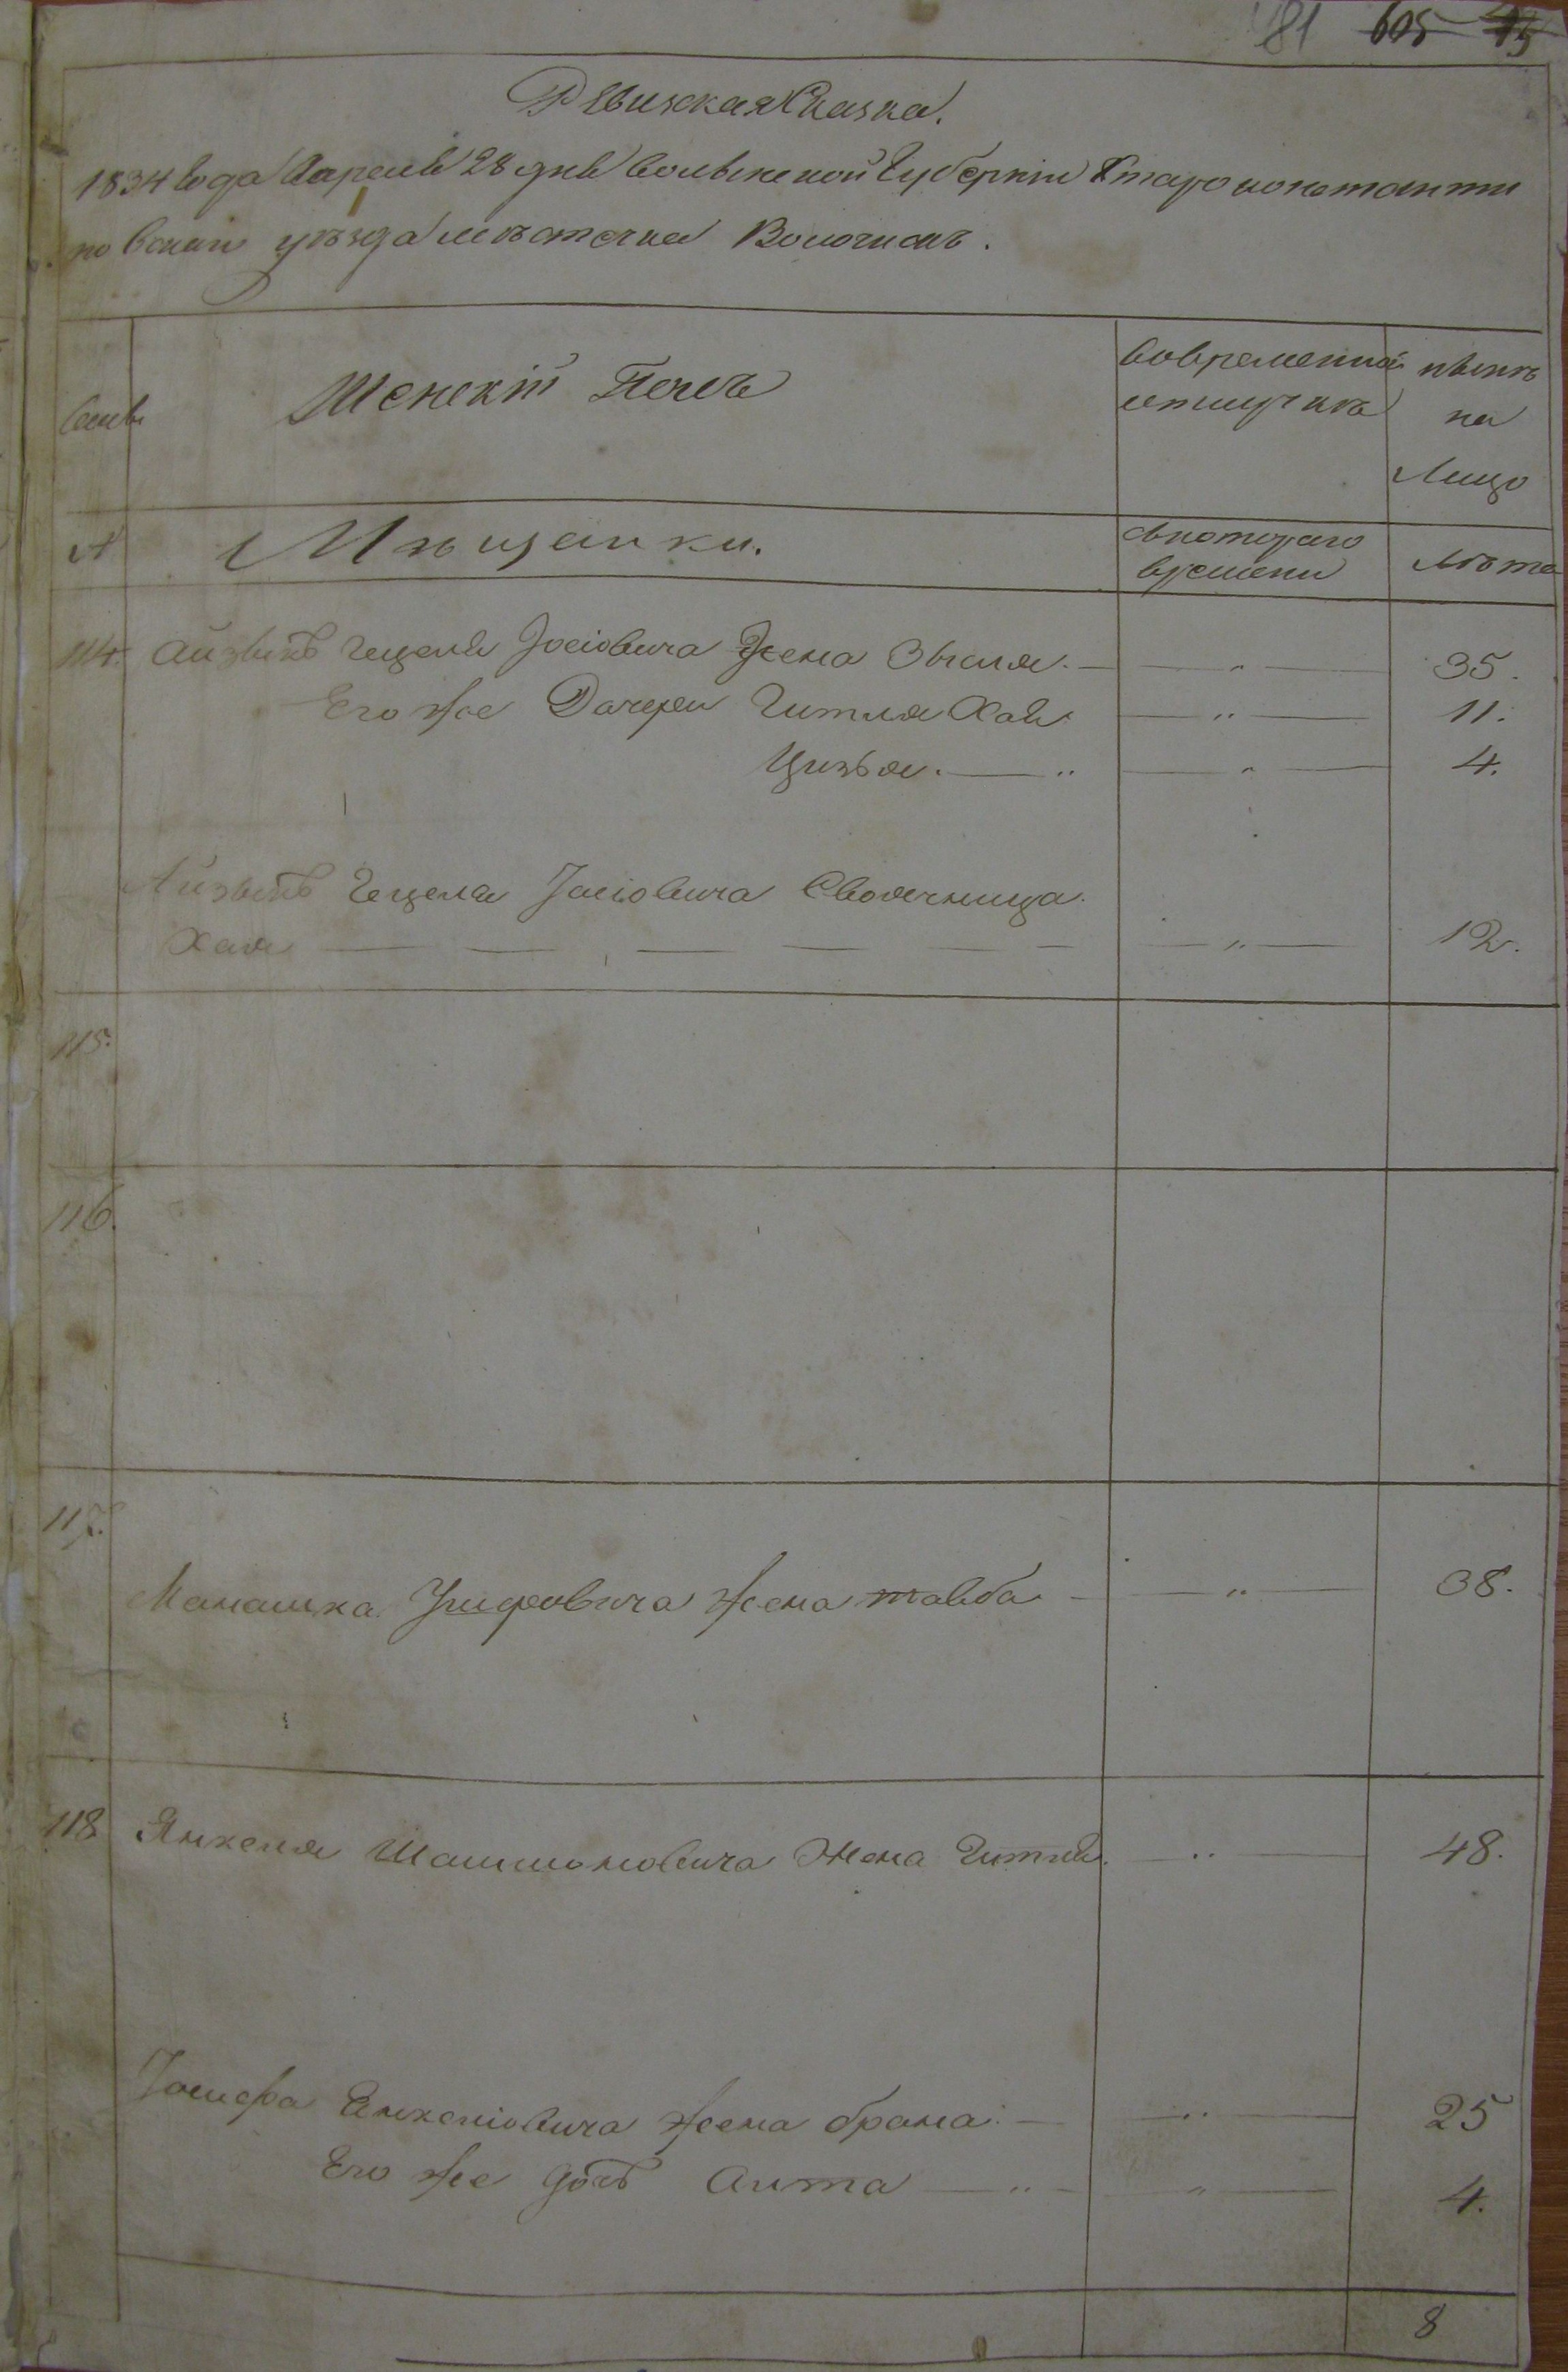 81 605 15
Ревизская Сказка.
1834 года Апреля 28 дня Волынской Губернiи Староконстанти
новскаго уѣзда мѣстечка Волочискъ.
Семьи Женскiй Полъ Вовременной отлучкѣ нынѣ на Лицо
№ Мѣщанки. Скотораго времени Лѣта
114. Айзыкъ Гецеля Iосiовича Жена Эвеля. — — " — 35.
Его же Дочери Гитля Хая — " — 11.
Цизья. — " — " — 4.
Айзыкъ Гецеля Iосiовича Своячница
Хая — — — — — — — " — 12.
115.
116.
117.
Манашка жена тавба — — " — 38.
118 Янкеля жена Гитля. — " — 48.
Iосифа Янкелiовича жена брана. — — " — 25
Его же дочь Аита — " — — " — 4.
8